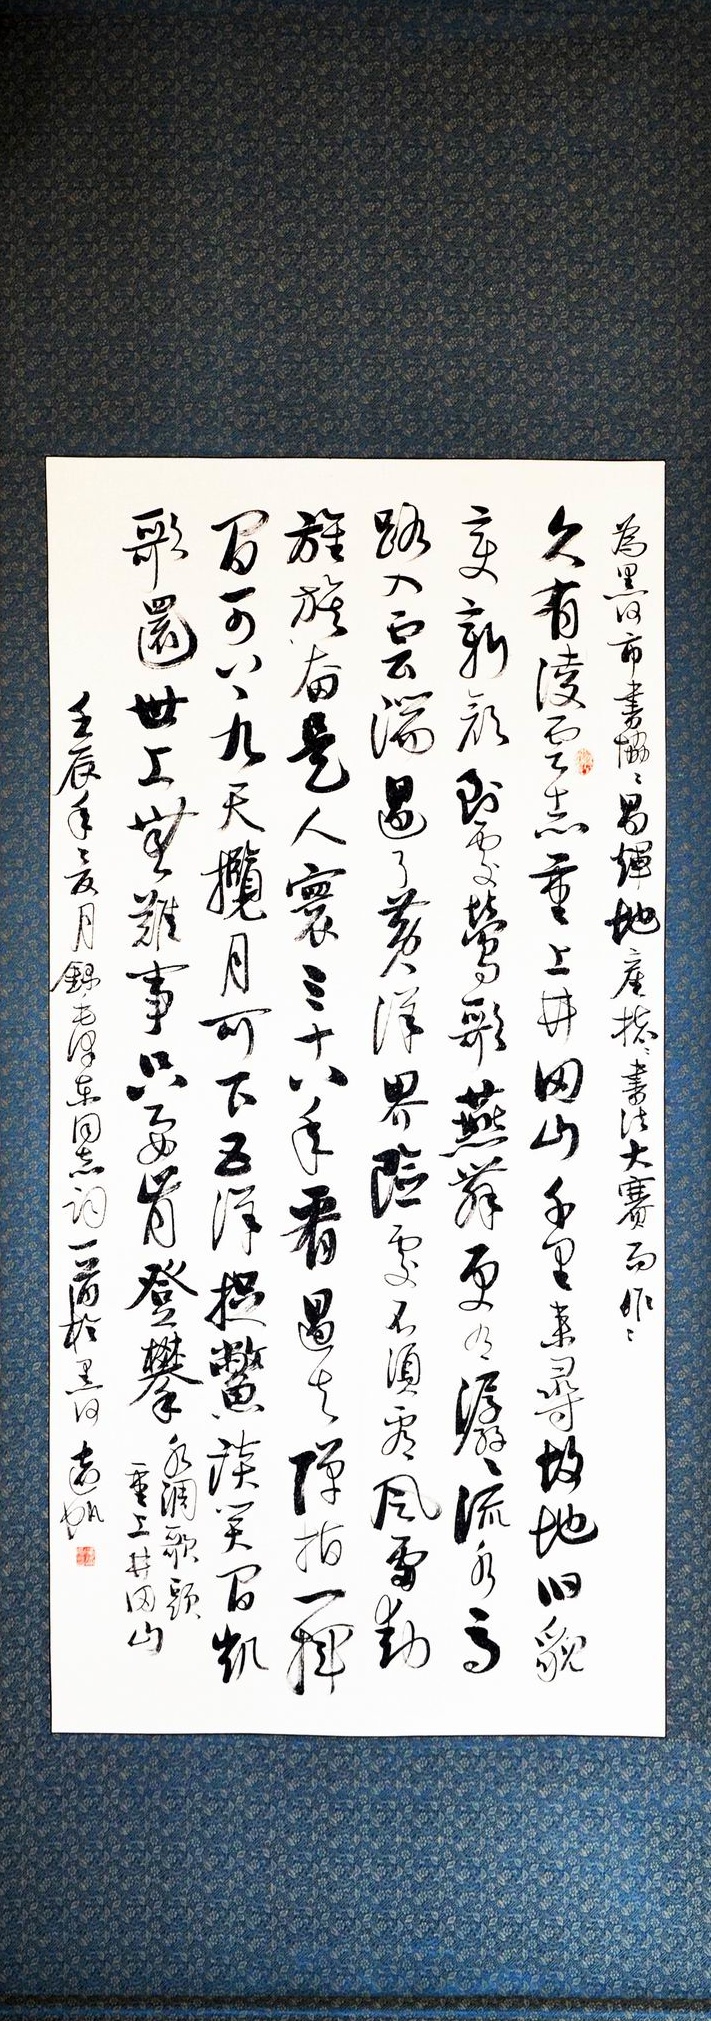 為黑河市書協昌輝地產書法大賽而作
久有凌雲志重上井岡山千里來尋故地旧貌
變新顏到處鶯歌燕舞更有潺潺流水高
路入雲端過了黃洋界險處不須看風雷動
旌旗奮是人寰三十八年看過去彈指一揮
間可上九天攬月可下五洋捉鱉談笑間凱
歌還世上無難事只要肯登攀
水調歌頭
重上井岡山
壬辰年月錄毛澤東同志詞一首於黑河